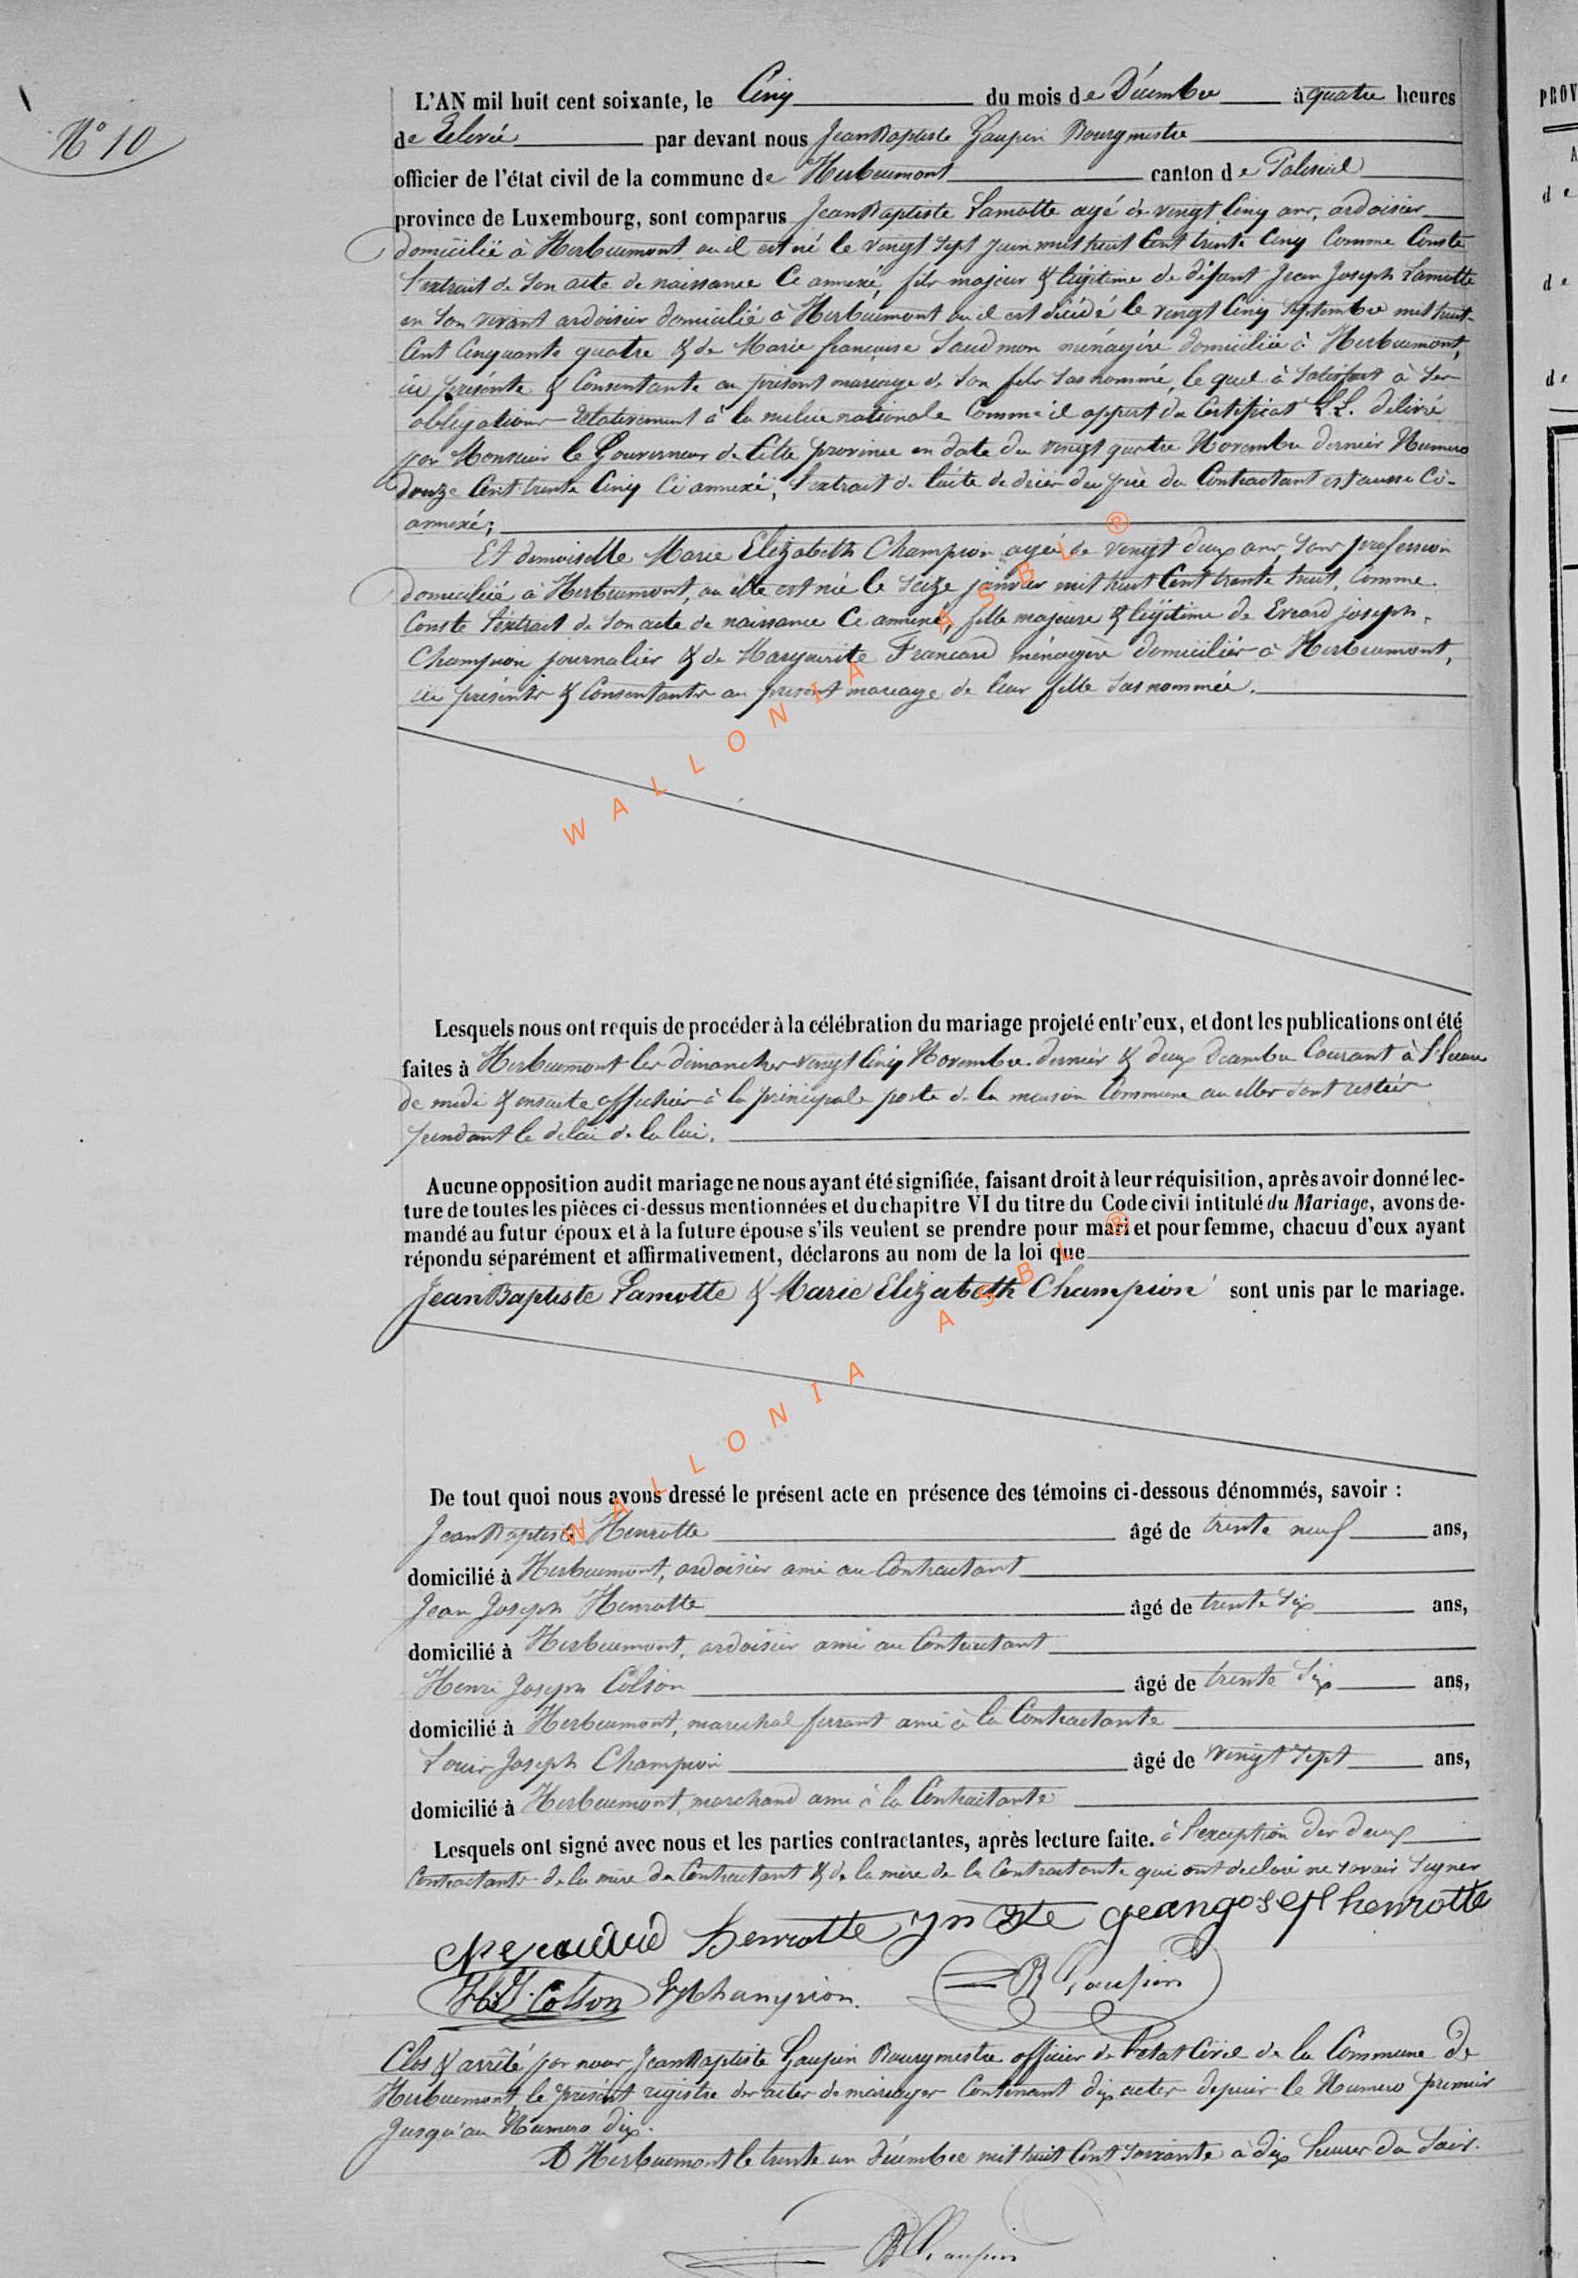 N° 10
L'AN mil huit cent soixante, le Cinq du mois de Décembre à quatre heures
de Relevée par devant nous Jean Baptiste Gaupin Bourgmestre
officier de l'état civil de la commune de Herbeumont canton de Paliseul
province de Luxembourg, sont comparus Jean Baptiste Lamotte agé de vingt Cinq ans, ardoisier
domicilié à Herbeumont ou il est né le vingt sept juin mil huit Cent trente Cinq Comme Conste
l'extrait de son acte de naissance Ci annexé, fils majeur & légitime de défunt Jean Joseph Lamotte
en son vivant ardoisier domicilié à Herbeumont ou il est décédé le vingt Cinq Septembre mil huit
Cent Cinquante quatre & de Marie françoise Saudmon ménagère domiciliée à Herbeumont,
ici présente & Consentante au présent mariage de son fils sus nommé, le quel à satisfait à ses
obligations relativement à la milice nationale Comme il appert du Certificat LL. délivré
par Monsieur le Gouverneur de Cette province en date du vingt quatre Novembre dernier Numero
douze Cent trente Cinq Ci annexé, l'extrait de l'acte de décès du père du Contractant est aussi Ci-
annexé;
Et demoiselle Marie Elizabeth Champion agée de vingt deux ans, sans profession
domiciliée à Herbeumont, ou elle est née le seize janvier mil huit Cent trente huit, Comme
Conste l'extrait de son acte de naissance Ci annexé, fille majeure & légitime de Evrard joseph
Champion journalier & de Marguerite Francard ménagère domiciliés à Herbeumont,
ici présents & Consentants au présent mariage de leur fille sus nommée.
Lesquels nous ont requis de procéder à la célébration du mariage projeté entr'eux, et dont les publications ont été
faites à Herbeumont les dimanches vingt Cinq Novembre dernier & deux décembre Courant à l'heure
de midi & ensuite affichées à la principale porte de la maison Commune ou elles sont restées
pendant le délai de la loi.
Aucune opposition audit mariage ne nous ayant été signifiée, faisant droit à leur réquisition, après avoir donné lec-
ture de toutes les pièces ci-dessus mentionnées et du chapitre VI du titre du Code civil intitulé du Mariage, avons de-
mandé au futur époux et à la future épouse s'ils veulent se prendre pour mari et pour femme, chacuu d'eux ayant
répondu séparément et affirmativement, déclarons au nom de la loi que
Jean Baptiste Lamotte & Marie Elizabeth Champion sont unis par le mariage.
De tout quoi nous avons dressé le présent acte en présence des témoins ci-dessous dénommés, savoir :
Jean Baptiste Henrotte âgé de trente neuf ans,
domicilié à Herbeumont, ardoisier ami au Contractant
Jean Joseph Henrotte âgé de trente Six ans,
domicilié à Herbeumont, ardoisier ami au Contractant
Henri Joseph Colson âgé de trente Six ans,
domicilié à Herbeumont, marechal ferrant ami à la Contractante
Louis Joseph Champion âgé de vingt Sept ans,
domicilié à Herbeumont, marchand ami à la Contractante
Lesquels ont signé avec nous et les parties contractantes, après lecture faite. à l'exception des deux
Contractants de la mère du Contractant & de la mère de la Contractante qui ont déclaré ne savoir signer
henrotte jn Bte Jeangoseph henrotte
H.J. Colson LJ Champion. JB Gaupin
Clos & arrêté par nous Jean Baptiste Gaupin Bourgmestre officier de l'etat Civil de la Commune de
Herbeumont, le présent régistre des actes de mariages Contenant dix actes depuis le Numero premier
Jusqu'au Numero dix.
A Herbeumont le trente un décembre mil huit Cent soixante à dix heures du Soir.
JB Gaupin
WALLONIA ASBL ®
WALLONIA ASBL ®
PROV
A
de
de
de